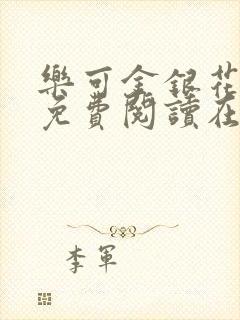 樂可金銀花
免費閱讀在
李軍